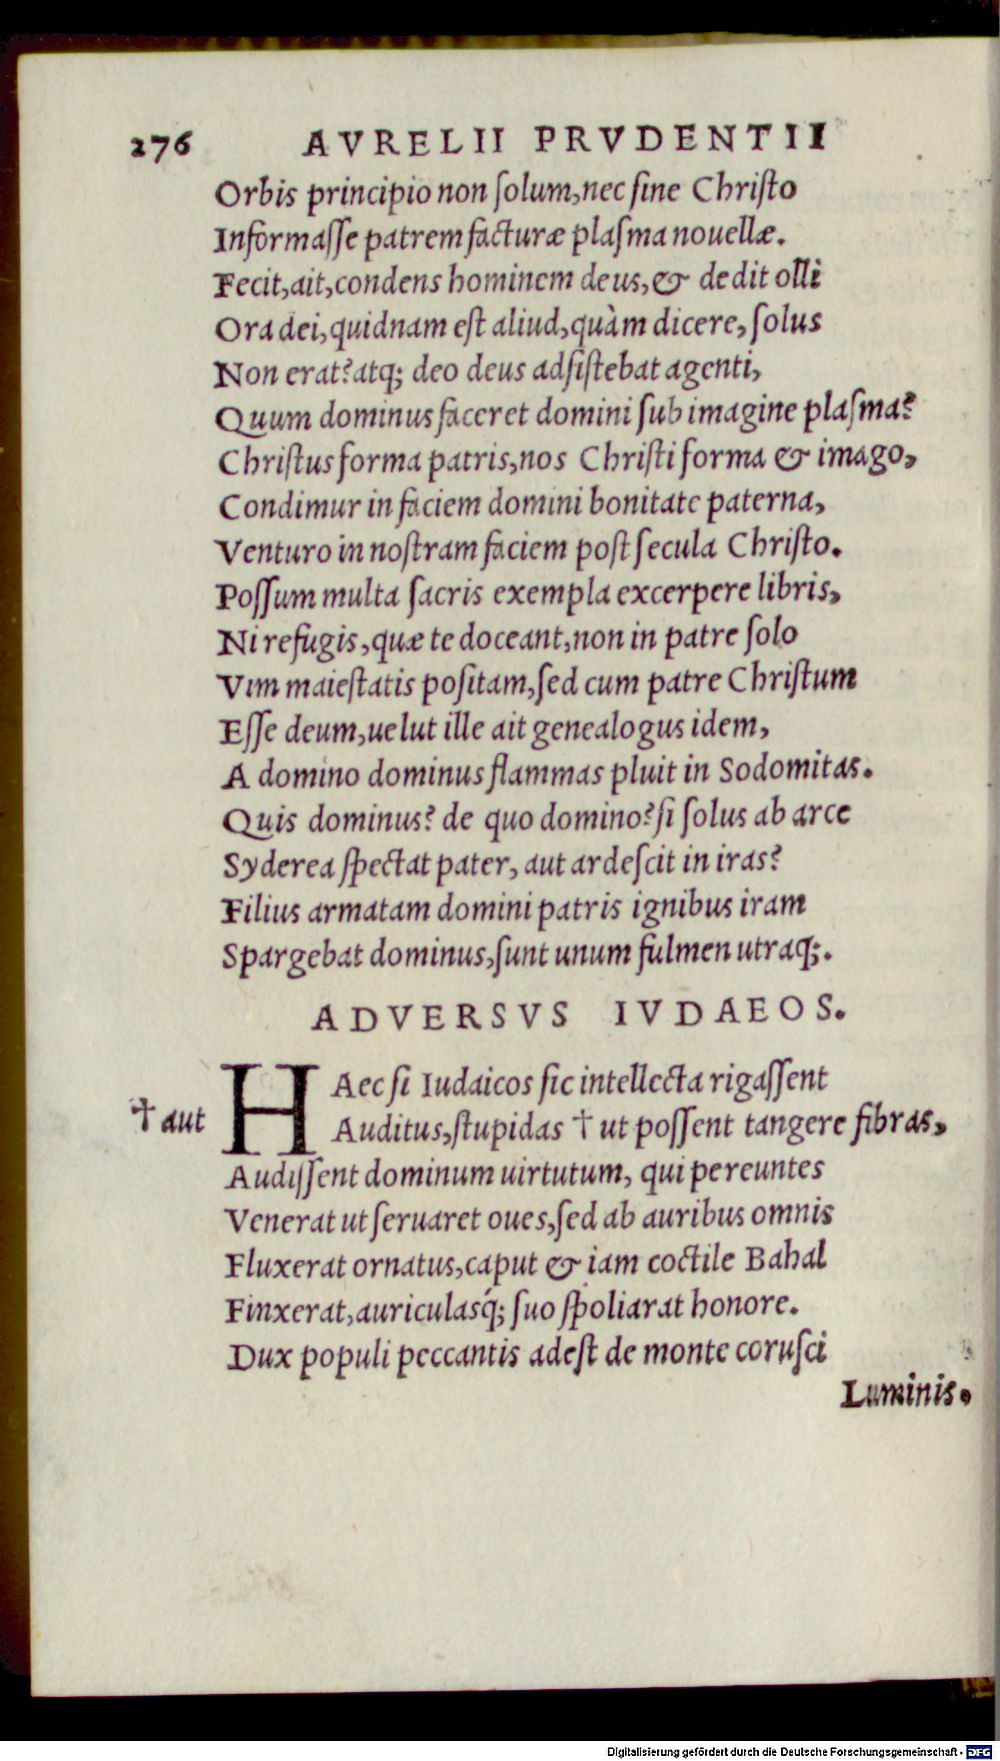 276 AVRELII PRVDENTII
Orbis principio non ſolum, nec ſine Chriſto
Informaſſe patrem facturæ plaſma nouellæ.
Fecit, ait, condens hominem deus, & dedit olli
Ora dei, quidnam eſt aliud, quàm dicere, ſolus
Non erat? atq; deo deus adſiſtebat agenti,
Quum dominus faceret domini ſub imagine plaſma?
Chriſtus forma patris, nos Chriſti forma & imago,
Condimur in faciem domini bonitate paterna,
Venturo in noſtram faciem poſt ſecula Chriſto.
Poſſum multa ſacris exempla excerpere libris,
Ni refugis, quæ te doceant, non in patre ſolo
Vim maieſtatis poſitam, ſed cum patre Chriſtum
Eſſe deum, uelut ille ait genealogus idem,
A domino dominus flammas pluit in Sodomitas.
Quis dominus? de quo domino? ſi ſolus ab arce
Syderea ſpectat pater, aut ardeſcit in iras?
Filius armatam domini patris ignibus iram
Spargebat dominus, ſunt unum fulmen utraq;.
ADVERSVS IVDAEOS.
HAec ſi Iudaicos ſic intellecta rigaſſent
† aut Auditus, ſtupidas † ut poſſent tangere fibras,
Audiſſent dominum uirtutum, qui pereuntes
Venerat ut ſeruaret oues, ſed ab auribus omnis
Fluxerat ornatus, caput & iam coctile Bahal
Finxerat, auriculasq́; ſuo ſpoliarat honore.
Dux populi peccantis adeſt de monte coruſci
Luminis.
Digitalisierung gefördert durch die Deutsche Forschungsgemeinschaft - DFG